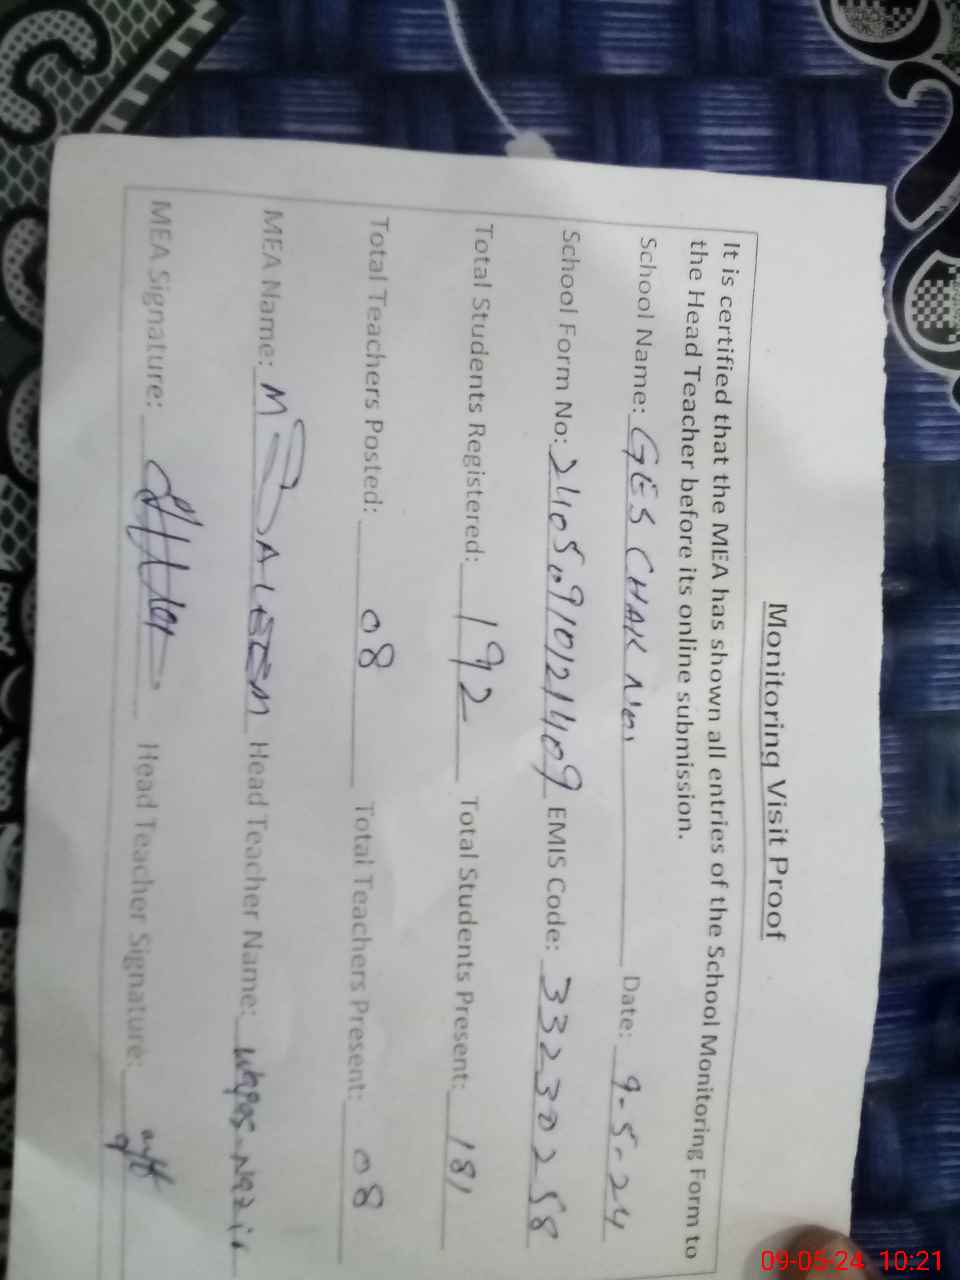 Monitoring Visit Proof
It is certified that the MEA has shown all entries of the School Monitoring Form to
the Head Teacher before its online submission.
School Name: GES CHAK No1 Date: 9-5-24
School Form No: EMIS Code: 33230258
Total Students Registered: 192 Total Students Present: 181
Total Teachers Posted: 08 Total Teachers Present: 08
MEA Name: M SALEEM Head Teacher Name: Waqas Nazir
MEA Signature: Head Teacher Signature:
09-05-24 10:21